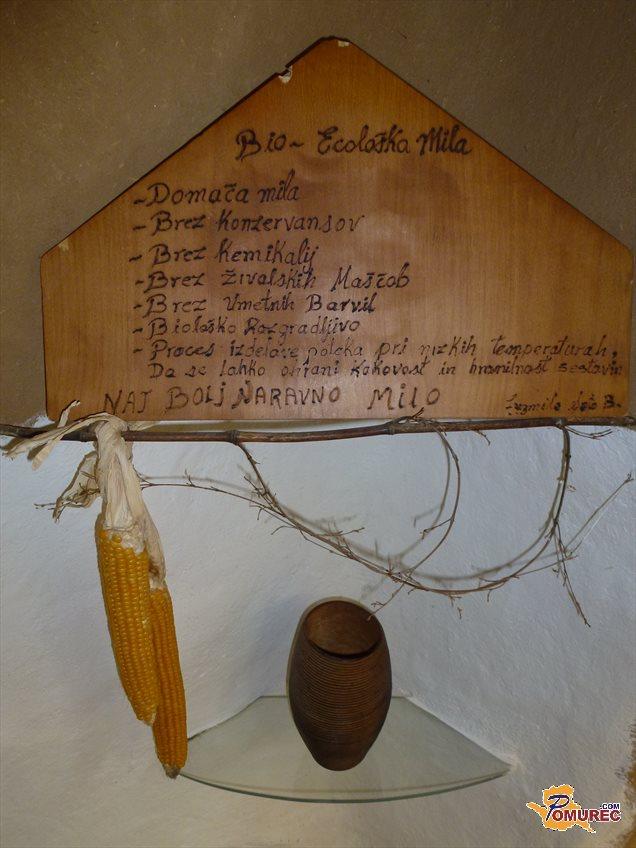 Bio - Ecološka Mila
- Domača mila
- Brez Konzervansov
- Brez Kemikalij
- Brez živalskih Maščob
- Brez Umetnih Barvil
- Biološko Razgradljivo
- Proces izdelave poteka pri nizkih temperaturah,
Da se lahko ohrani kakovost in hranilnost sestavin
NAJ BOLJ NARAVNO MILO
B.
POMUREC.COM